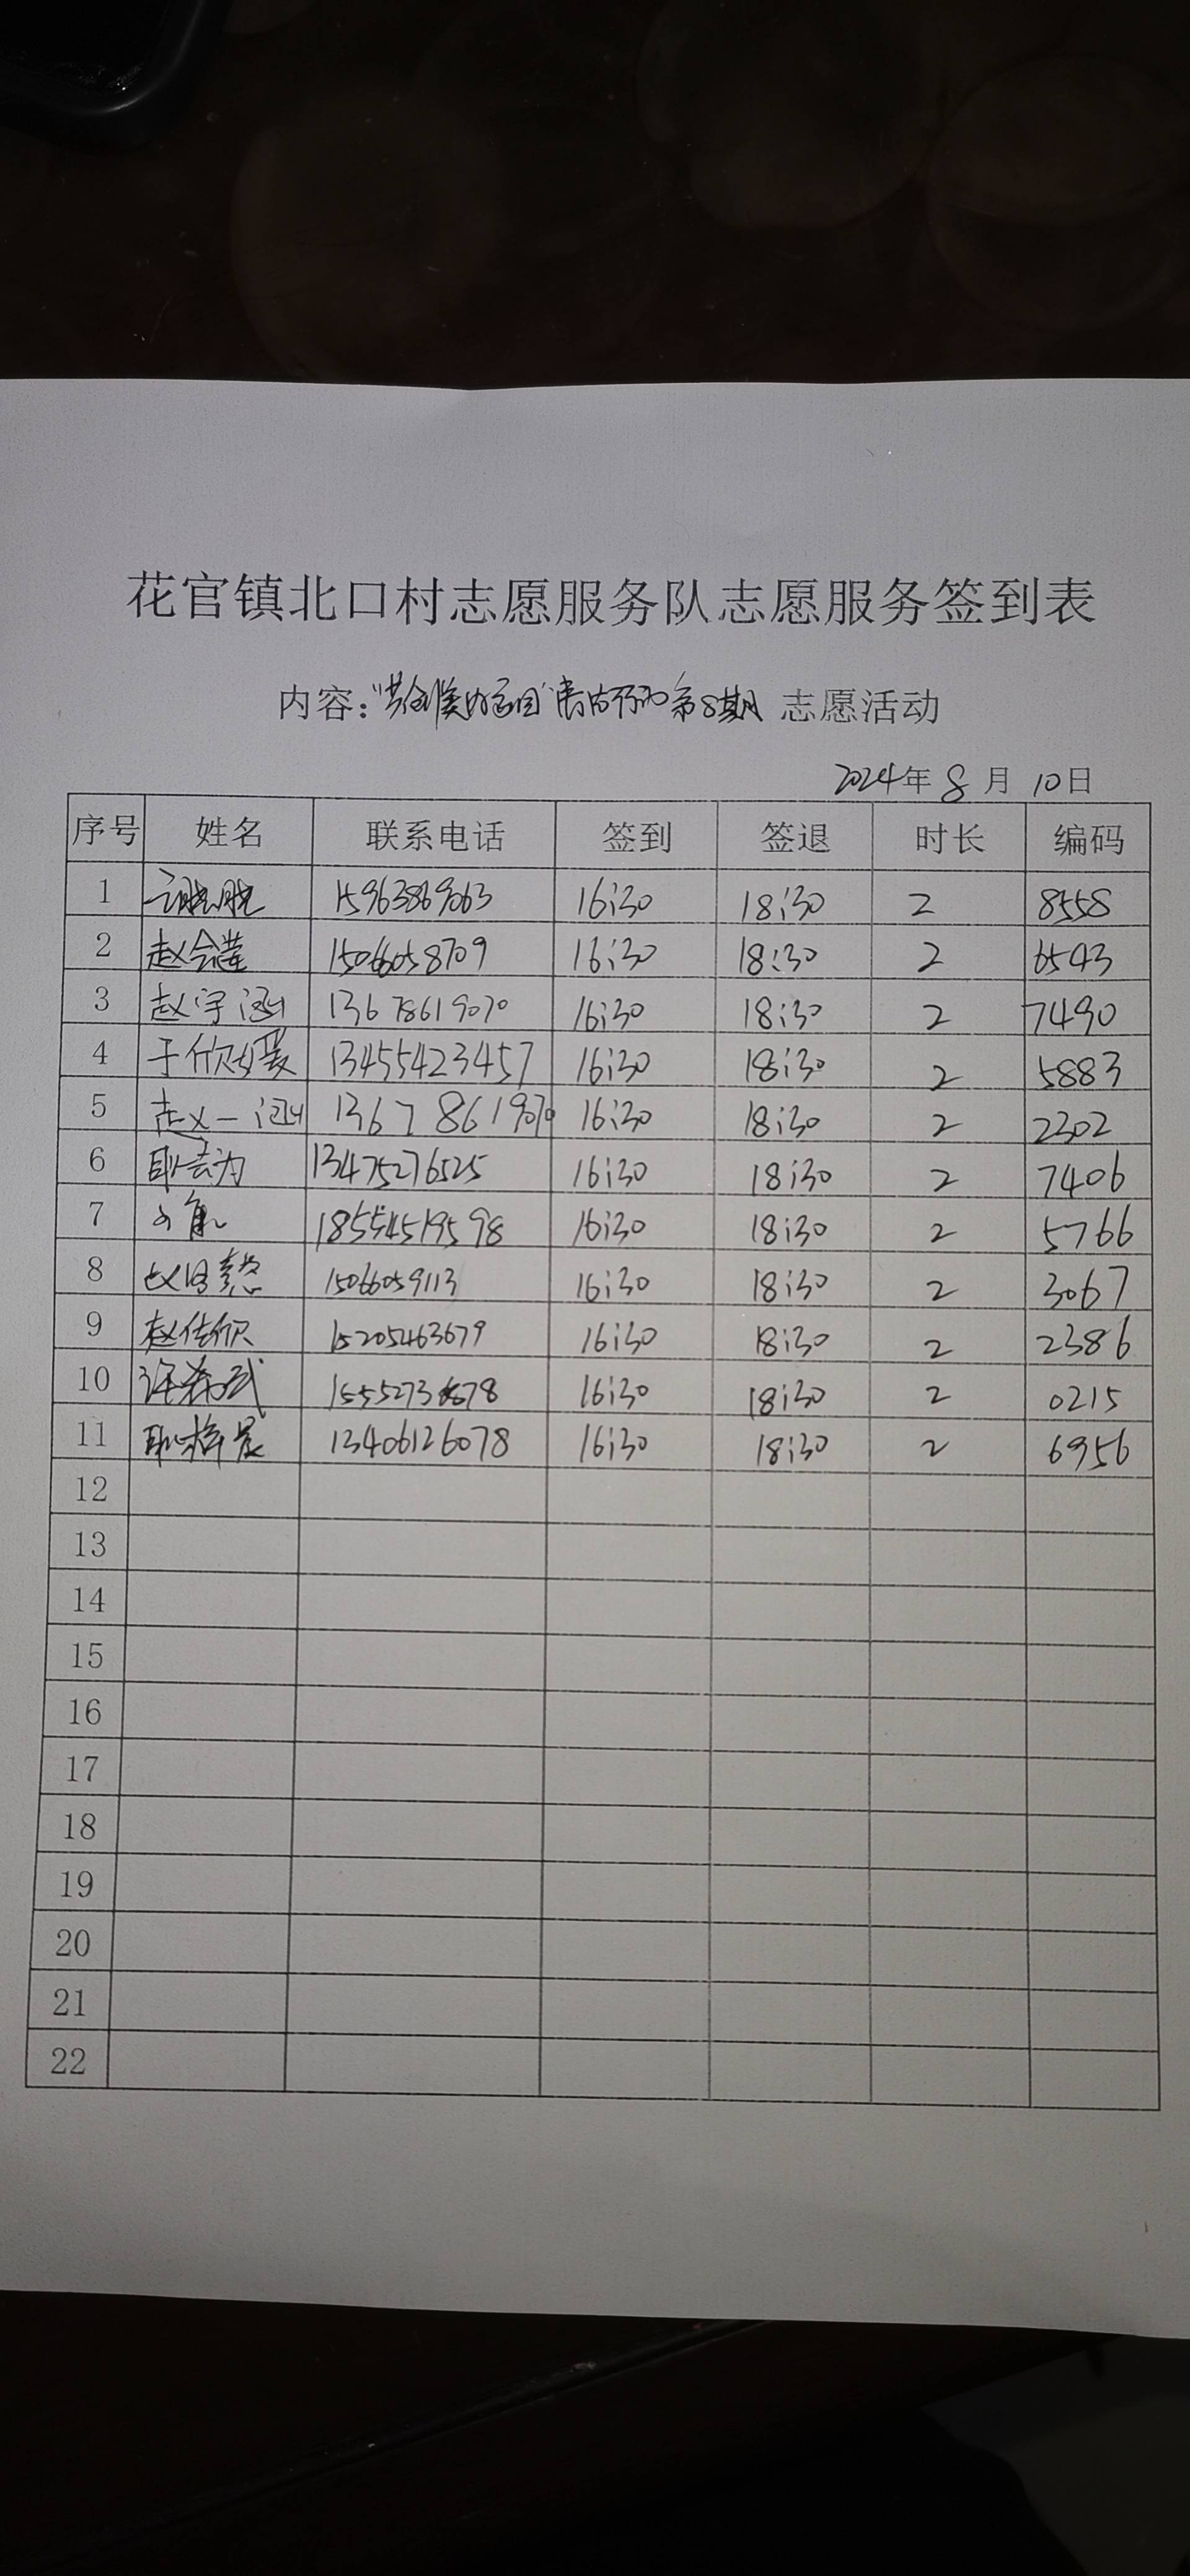 花官镇北口村志愿服务队志愿服务签到表
内容：“共创美好家园”青春行动第8期 志愿活动
2024年 8 月 10日
序号 姓名 联系电话 签到 签退 时长 编码
1 15963869063 16:30 18:30 2 8558
2 赵会莲 15066058709 16:30 18:30 2 6543
3 赵宇涵 13678619070 16:30 18:30 2 7490
4 于欣媛 13455423457 16:30 18:30 2 5883
5 赵一涵 13678619070 16:30 18:30 2 2302
6 耿会为 13475276525 16:30 18:30 2 7406
7 18554519598 16:30 18:30 2 5766
8 15066059113 16:30 18:30 2 3067
9 赵佳欣 15205463679 16:30 18:30 2 2386
10 许希武 16:30 18:30 2 0215
11 耿梓晨 13406126078 16:30 18:30 2 6956
12
13
14
15
16
17
18
19
20
21
22